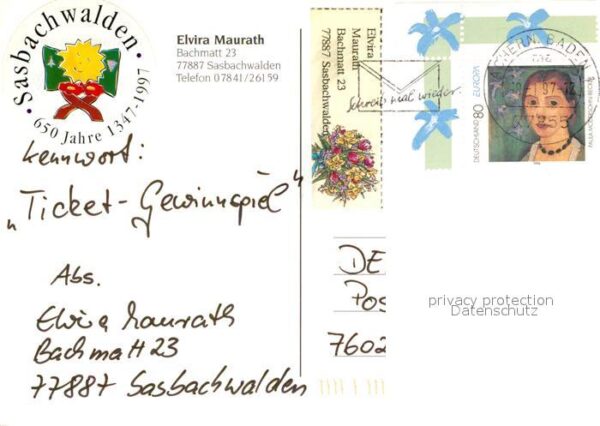 Sasbachwalden.
650 Jahre 1347-1997
Elvira Maurath
Bachmatt 23
77887 Sasbachwalden
Telefon 07841/26159
Kennwort:
„Ticket-Gewinnspiel"
Abs.
Elvira Maurath
Bachmatt 23
77887 Sasbachwalden
Elvira
Maurath
Bachmatt 23
77887 Sasbachwalden
Schreib mal wieder.
ACHERN, BADEN
DEUTSCHLAND
80
EUROPA
DE
Pos
7602
privacy protection
Datenschutz